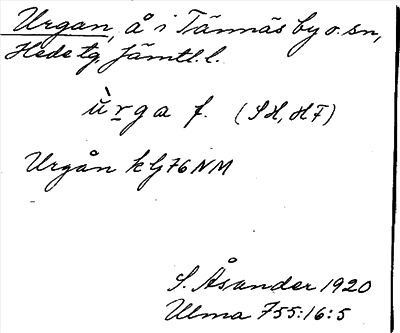 Urgan, å i Tännäs by o. sn,
Hede tg Jämtl. l.
ùrga f. (SH, HF)
Urgån k Gj76NM
S. Åsander 1920
Ulma 755:16:5